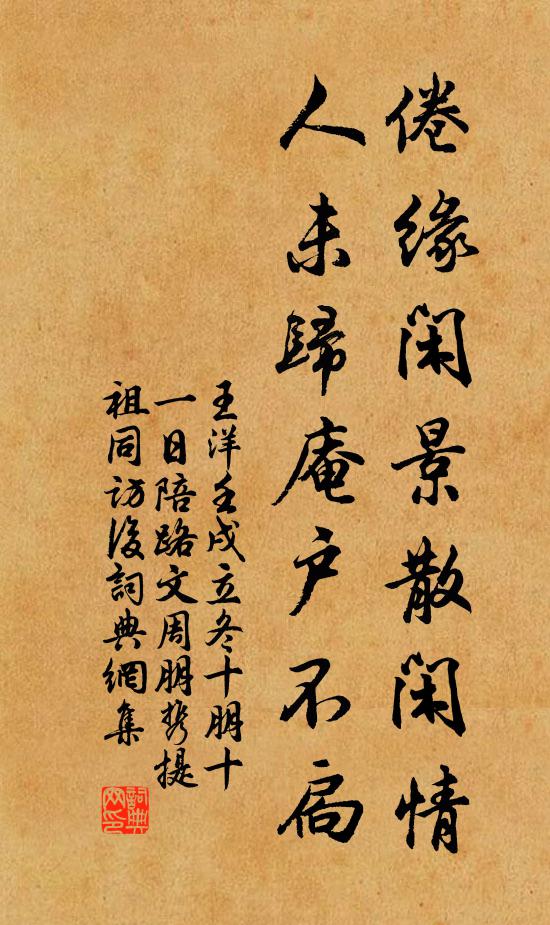 倦缘闲景散闲情
人未歸庵户不扃
王洋壬戌立冬十朋十
一日陪路文周朋携提
祖同访後詞典網集
詞典网印